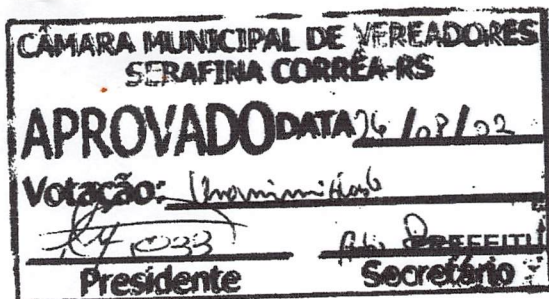 CÂMARA MUNICIPAL DE VEREADORES
SERAFINA CORRÊA-RS
APROVADO DATA 26/08/02
Votação:
PREFEITU
Presidente Secretário